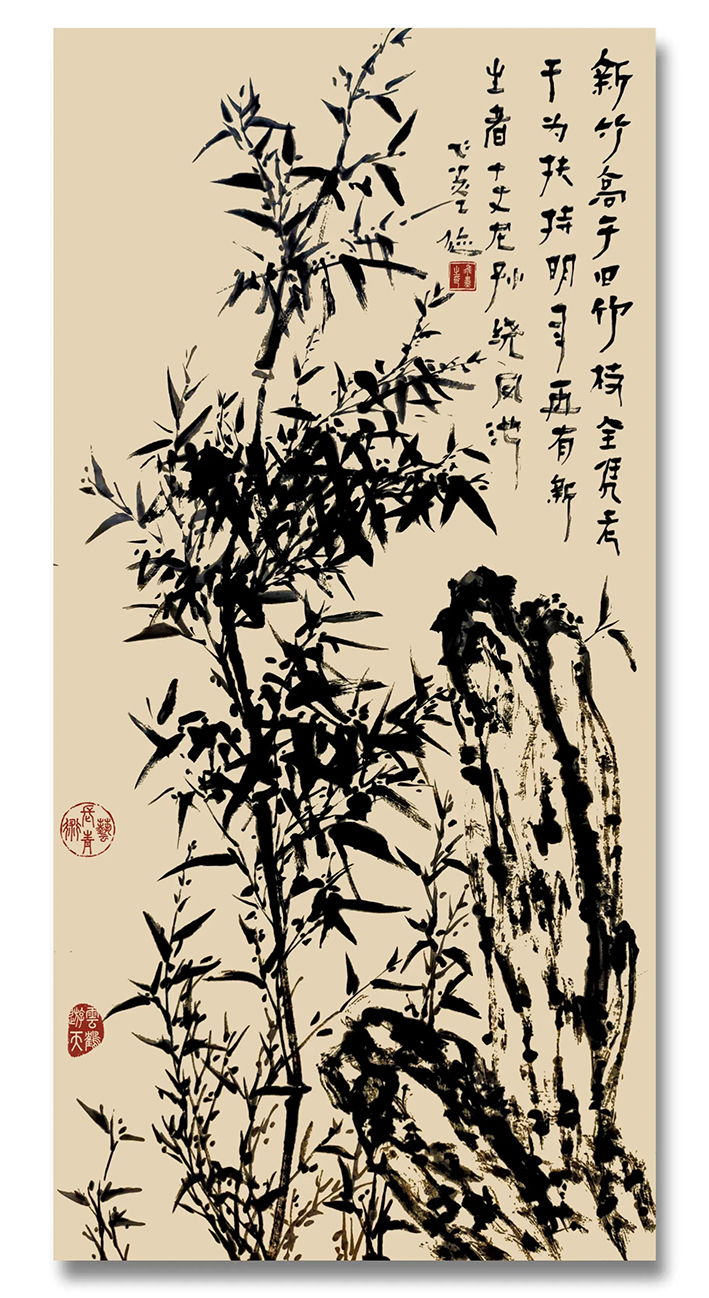 新竹高于旧竹枝全凭老
干为扶持明年再有新
生者十丈龙孙绕凤池
藝術長青
雲鶴游天